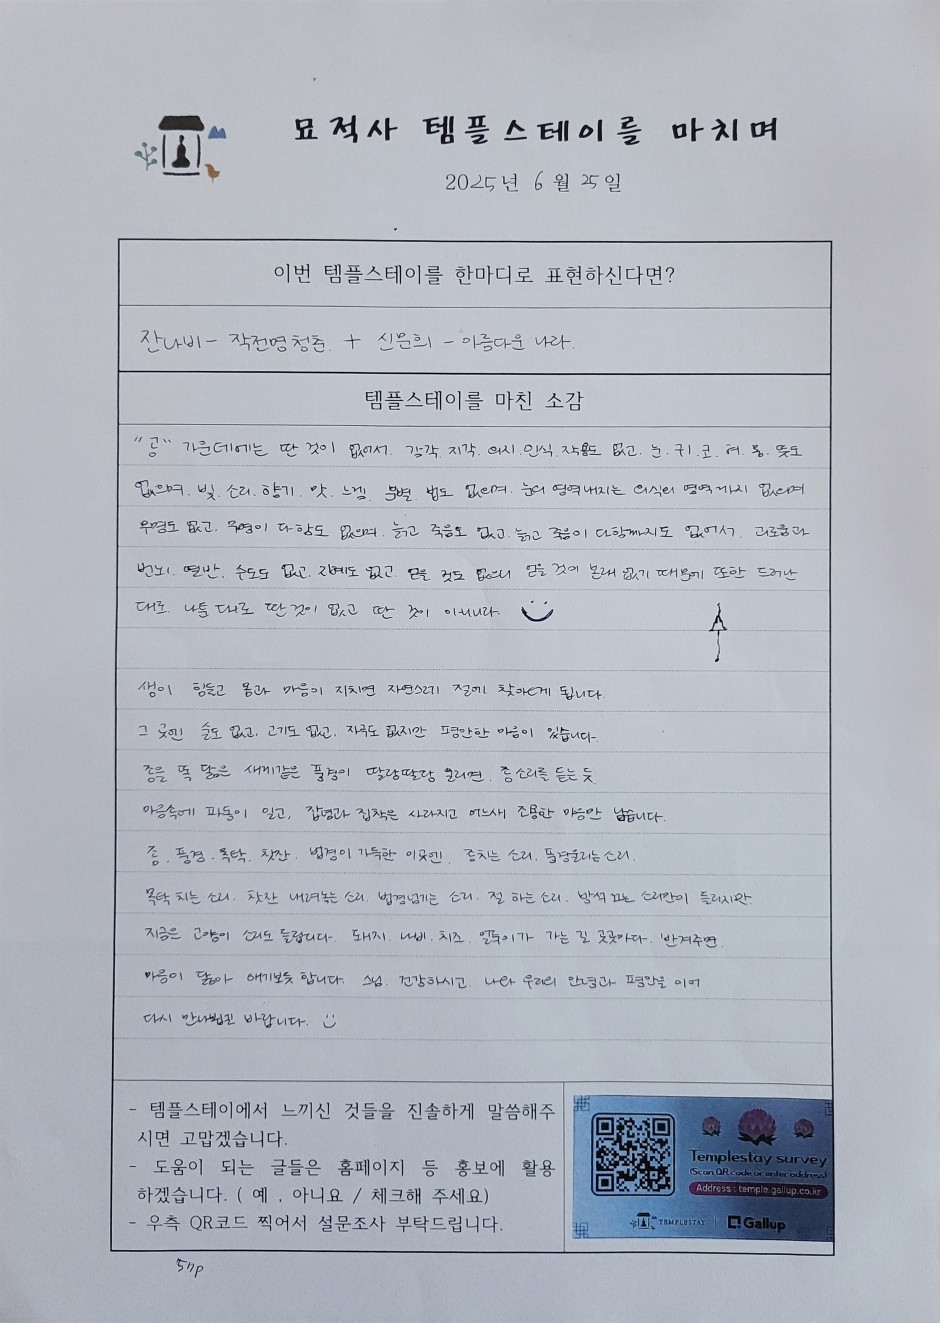 묘적사 템플스테이를 마치며
2025년 6월 25일
이번 템플스테이를 한마디로 표현하신다면?
잔나비 - 작전명청춘 + 신문희 - 아름다운 나라.
템플스테이를 마친 소감
"공" 가운데에는 딴 것이 없어서. 감각. 지각. 의지. 인식. 작용도 없고. 눈. 귀. 코. 혀. 몸. 뜻도
없으며. 빛. 소리. 향기. 맛. 느낌. 분별. 법도 없으며. 눈의 영역내지는 의식의 영역까지 없으며
무명도 없고. 무명이 다함도 없으며. 늙고 죽음도 없고. 늙고 죽음이 다함까지도 없어서. 괴로움과
번뇌. 열반. 수도도 없고. 지혜도 없고. 얻을 것도 없으니 얻을 것이 본래 없기 때문에 또한 드러난
대로. 나툰 대로 딴 것이 없고 딴 것이 아니니라.
생이 힘들고 몸과 마음이 지치면 자연스레 절에 찾아오게 됩니다.
그 곳엔 술도 없고. 고기도 없고. 자극도 없지만 평안한 마음이 있습니다.
종을 똑 닮은 새끼같은 풍경이 딸랑딸랑 울리면. 종소리를 듣는 듯
마음속에 파동이 일고, 잡념과 집착은 사라지고 어느새 조용한 마음만 남습니다.
종. 풍경. 목탁. 찻잔. 법경이 가득한 이곳엔. 종치는 소리. 풍경울리는 소리.
목탁 치는 소리. 찻잔 내려놓는 소리. 법경넘기는 소리. 절 하는 소리. 방석 끄는 소리만이 들리지만.
지금은 고양이 소리도 들립니다. 돼지. 나비. 치즈. 얼룩이가 가는 길 곳곳마다. 반겨주면.
마음이 닳아 애기보듯 합니다. 스님. 건강하시고. 나와 우리의 안녕과 평안을 이어
다시 만나뵙길 바랍니다.
- 템플스테이에서 느끼신 것들을 진솔하게 말씀해주
시면 고맙겠습니다.
- 도움이 되는 글들은 홈페이지 등 홍보에 활용
하겠습니다. ( 예 , 아니요 / 체크해 주세요)
- 우측 QR코드 찍어서 설문조사 부탁드립니다.
Templestay survey
(Scan QR code or enter address)
Address : temple.gallup.co.kr
TEMPLESTAY
Gallup